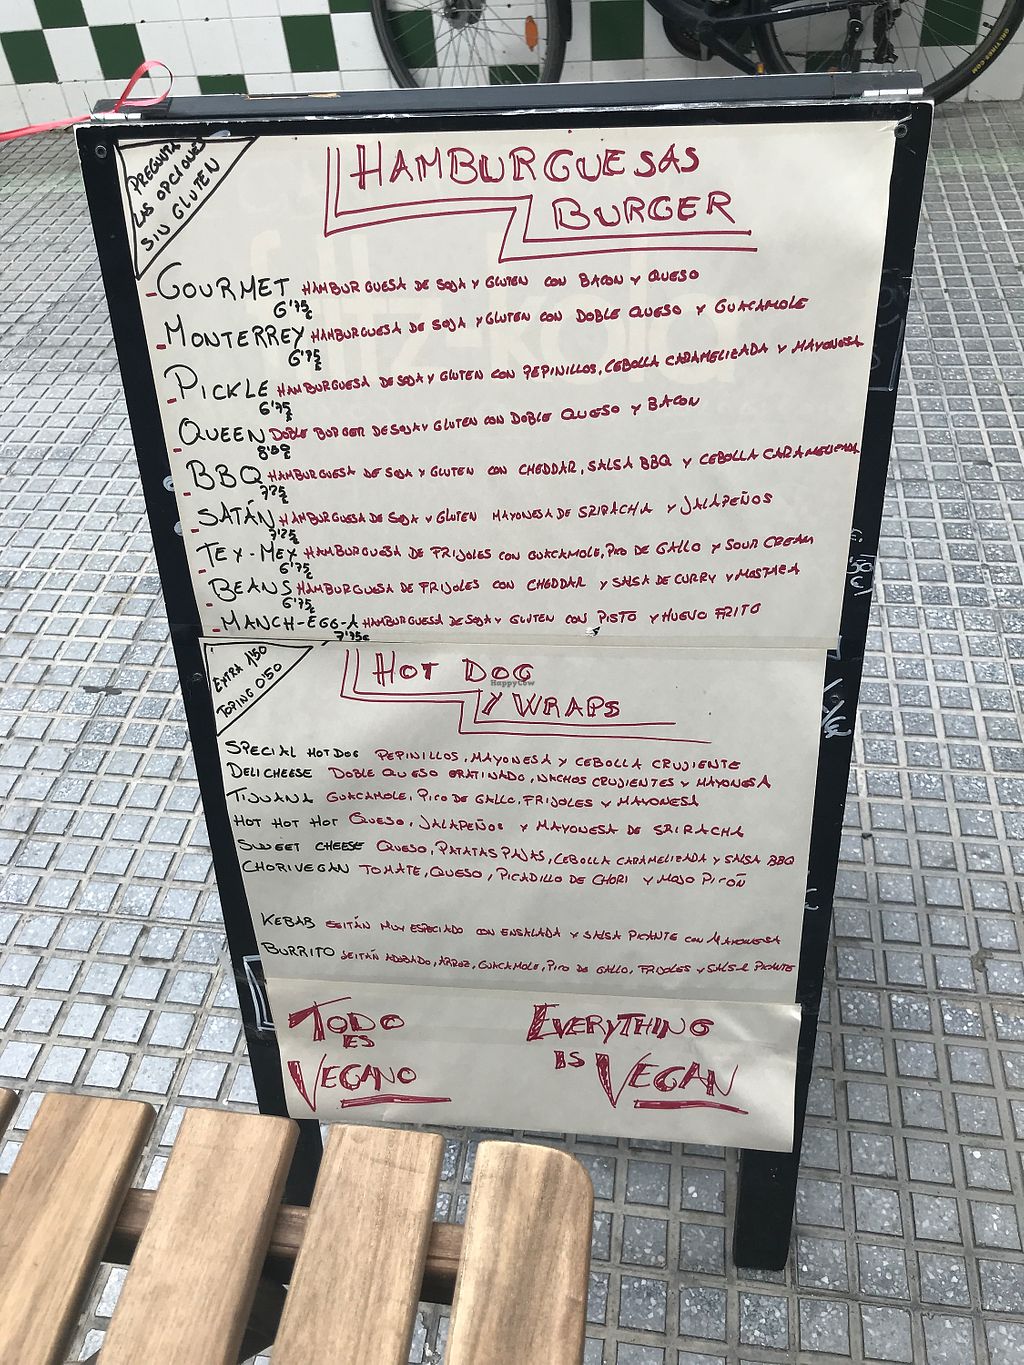 PREGUNTA
LAS OPCIONES
SIN GLUTEN
HAMBURGUESAS
BURGER
- GOURMET HAMBURGUESA DE SOJA Y GLUTEN CON BACON Y QUESO
6'75€
- MONTERREY HAMBURGUESA DE SOJA Y GLUTEN CON DOBLE QUESO Y GUACAMOLE
6'75€
- PICKLE HAMBURGUESA DE SOJA Y GLUTEN CON PEPINILLOS, CEBOLLA CARAMELIZADA Y MAYONESA
6'75€
- QUEEN DOBLE BURGER DE SOJA Y GLUTEN CON DOBLE QUESO Y BACON
- BBQ HAMBURGUESA DE SOJA Y GLUTEN CON CHEDDAR, SALSA BBQ Y CEBOLLA CARAMELIZADA
7'75€
- SATÁN HAMBURGUESA DE SOJA Y GLUTEN MAYONESA DE SRIRACHA Y JALAPEÑOS
- TEX-MEX HAMBURGUESA DE FRIJOLES CON GUACAMOLE, PICO DE GALLO Y SOUR CREAM
6'75€
- BEANS HAMBURGUESA DE FRIJOLES CON CHEDDAR Y SALSA DE CURRY Y MOSTAZA
6'75€
- MANCH-EGG-A HAMBURGUESA DE SOJA Y GLUTEN CON PISTO Y HUEVO FRITO
7'75€
EXTRA 1'50
TOPING 0'50
HOT DOG
Y WRAPS
HappyCow
SPECIAL HOT DOG PEPINILLOS, MAYONESA Y CEBOLLA CRUJIENTE
DELI CHEESE DOBLE QUESO GRATINADO, NACHOS CRUJIENTES Y MAYONESA
TIJUANA GUACAMOLE, PICO DE GALLO, FRIJOLES Y MAYONESA
HOT HOT HOT QUESO, JALAPEÑOS Y MAYONESA DE SRIRACHA
SWEET CHEESE QUESO, PATATAS PAJAS, CEBOLLA CARAMELIZADA Y SALSA BBQ
CHORIVEGAN TOMATE, QUESO, PICADILLO DE CHORI Y MOJO PICÓN
KEBAB SEITÁN MUY ESPECIADO CON ENSALADA Y SALSA PICANTE CON MAYONESA
BURRITO SEITÁN ADOBADO, ARROZ, GUACAMOLE, PICO DE GALLO, FRIJOLES Y SALSA PICANTE
TODO
ES
VEGANO
EVERYTHING
IS VEGAN